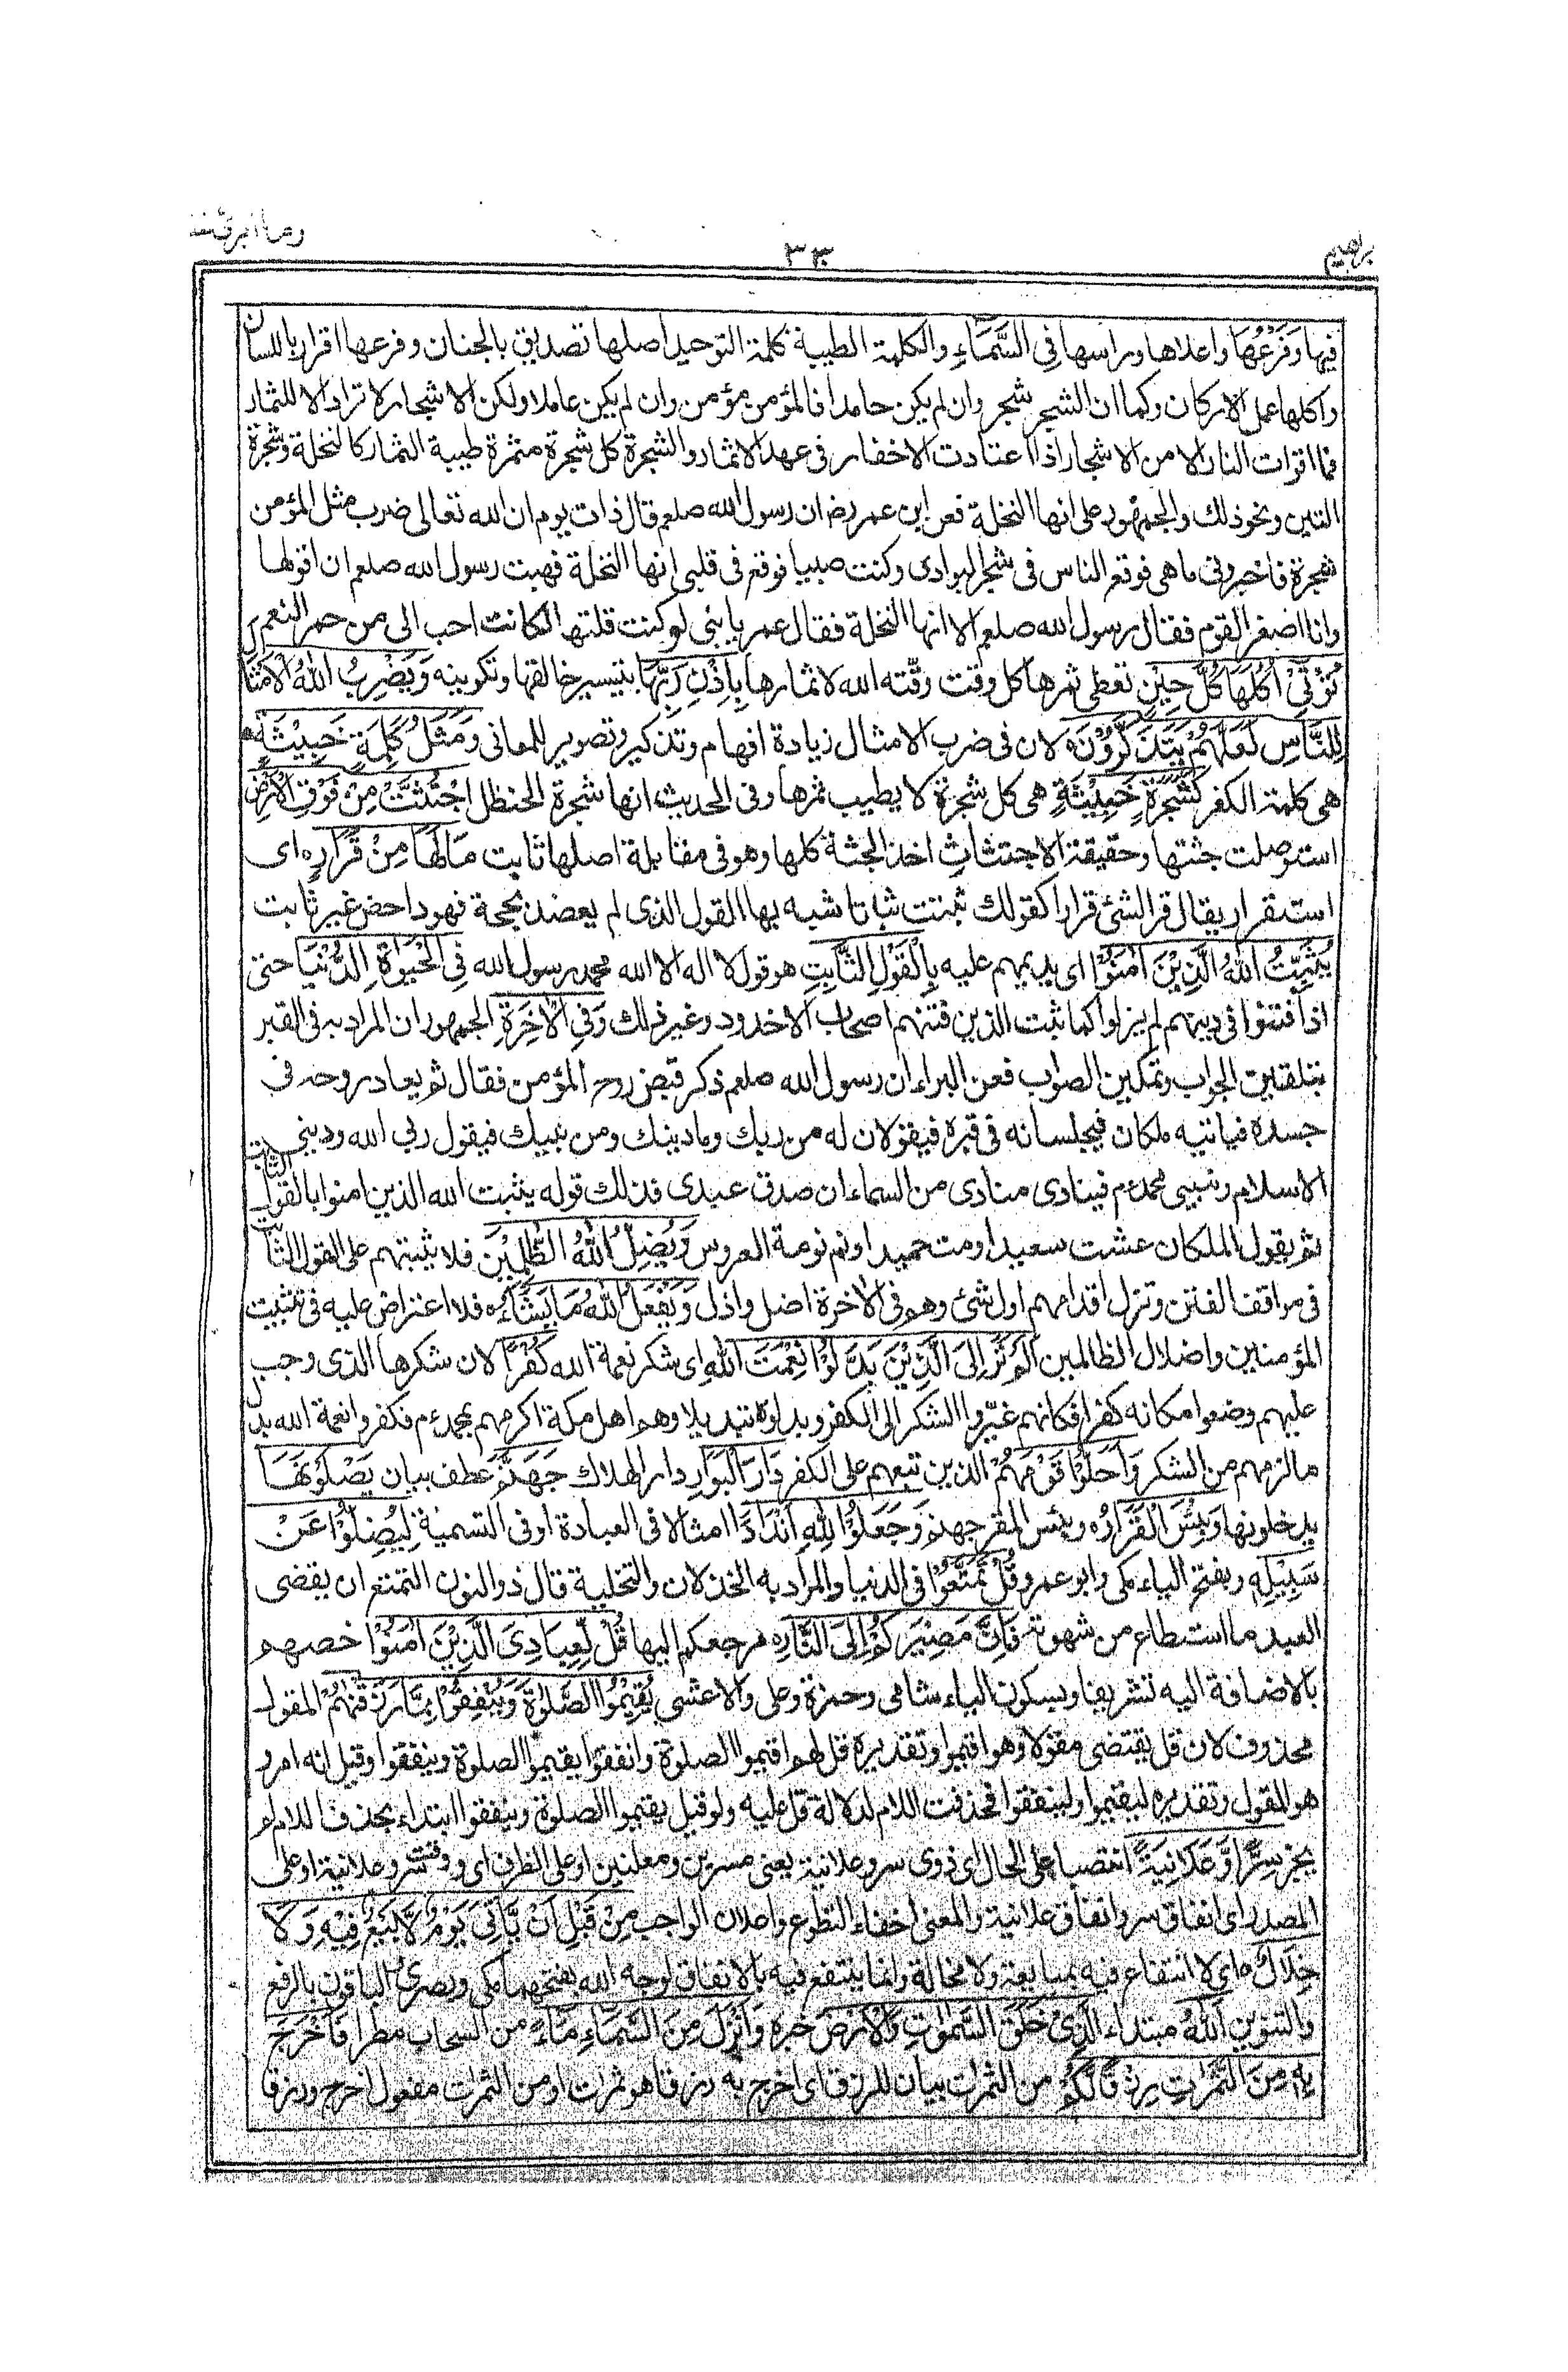 ابراهيم
٣٣
وما ابرئ
فيها وَفَرْعُهَا واعلاها وراسها فِي السَّمَاءِ والكلمة الطيبة كلمة التوحيد اصلها تصديق بالجنان وفرعها اقرار باللسان
واكلها عمل الاركان وكما ان الشجر شجر وان لم يكن حاملا فالمؤمن مؤمن وان لم يكن عاملا ولكن الاشجار لا تراد الا للثمار
فما اقوات النار الا من الاشجار اذا اعتادت الاخفار فى عهد الاثمار والشجرة كل شجرة مثمرة طيبة الثمار كالنخلة وشجرة
التين ونحو ذلك والجمهور على انها النخلة فعن ابن عمر رضـ ان رسول الله صلعم قال ذات يوم ان الله تعالى ضرب مثل المؤمن
شجرة فاخبرونى ما هى فوقع الناس فى شجر البوادى وكنت صبيا فوقع فى قلبى انها النخلة فهبت رسول الله صلعم ان اقولها
وانا اصغر القوم فقال رسول الله صلعم الا انها النخلة فقال عمر يا بنى لو كنت قلتها لكانت احب الى من حمر النعم
تُؤْتِيْ اُكُلَهَا كُلَّ حِيْنٍ تعطى ثمرها كل وقت وقّته الله لاثمارها بِاِذْنِ رَبِّهَا بتيسير خالقها وتكوينه وَيَضْرِبُ اللهُ الْاَمْثَالَ
لِلنَّاسِ لَعَلَّهُمْ يَتَذَكَّرُوْنَ ٥ لان فى ضرب الامثال زيادة افهام وتذكير وتصوير للمعانى وَمَثَلُ كَلِمَةٍ خَبِيْثَةٍ
هى كلمة الكفر كَشَجَرَةٍ خَبِيْثَةٍ هى كل شجرة لا يطيب ثمرها وفى الحديث انها شجرة الحنظل اجْتُثَّتْ مِنْ فَوْقِ الْاَرْضِ
استوصلت جثتها وحقيقة الاجتثاث اخذ الجثة كلها وهو فى مقابلة اصلها ثابت مَا لَهَا مِنْ قَرَارٍ ٥ اى
استقرار يقال قر الشئ قرارا كقولك ثبت ثباتا شبه بها القول الذى لم يعضد بحجة فهو داحض غير ثابت
يُثَبِّتُ اللهُ الَّذِيْنَ اٰمَنُوْا اى يديمهم عليه بِالْقَوْلِ الثَّابِتِ هو قول لا اله الا الله محمد رسول الله فِي الْحَيٰوةِ الدُّنْيَا حتى
اذا فتنوا فى دينهم لم يزلوا كما ثبت الذين فتنهم اصحاب الاخدود وغير ذلك وَفِي الْاٰخِرَةِ الجمهور ان المراد به فى القبر
بتلقين الجواب وتمكين الصواب فعن البراء ان رسول الله صلعم ذكر قبض روح المؤمن فقال ثم يعاد روحه فى
جسده فياتيه ملكان فيجلسانه فى قبره فيقولان له من ربك وما دينك ومن نبيك فيقول ربى الله ودينى
الاسلام ونبيى محمد ءم فينادى منادى من السماء ان صدق عبدى فذلك قوله يثبت الله الذين امنوا بالقول الثابت
ثم يقول الملكان عشت سعيدا ومت حميدا ونم نومة العروس وَيُضِلُّ اللهُ الظّٰلِمِيْنَ فلا يثبتهم على القول الثابت
فى مواقف الفتن وتزل اقدامهم اول شئ وهم فى الاخرة اضل واذل وَيَفْعَلُ اللهُ مَا يَشَاءُ ٥ فلا اعتراض عليه فى تثبيت
المؤمنين واضلال الظالمين اَلَمْ تَرَ اِلَى الَّذِيْنَ بَدَّلُوْا نِعْمَتَ اللهِ اى شكر نعمة الله كُفْرًا لان شكرها الذى وجب
عليهم وضعوا مكانه كفرا فكانهم غيّروا الشكر الى الكفر وبدلوه تبديلا وهم اهل مكة اكرمهم بمحمد ءم فكفروا نعمة الله بدل
ما لزمهم من الشكر وَاَحَلُّوْا قَوْمَهُمْ الذين تبعهم على الكفر دَارَ الْبَوَارِ دار الهلاك جَهَنَّمَ عطف بيان يَصْلَوْنَهَا
يدخلونها وَبِئْسَ الْقَرَارُ ٥ وبئس المقر جهنم وَجَعَلُوْا لِلّٰهِ اَنْدَادًا امثالا فى العبادة او فى التسمية لِيُضِلُّوْا عَنْ
سَبِيْلِهِ وبفتح الياء مكى وابو عمرو قُلْ تَمَتَّعُوْا فى الدنيا والمراد به الخذلان والتخلية قال ذو النون التمتع ان يقضى
العبد ما استطاع من شهوته فَاِنَّ مَصِيْرَكُمْ اِلَى النَّارِ ٥ مرجعكم اليها قُلْ لِّعِبَادِيَ الَّذِيْنَ اٰمَنُوْا خصهم
بالاضافة اليه تشريفا وبسكون الياء شامى وحمزة وعلى والاعشى يُقِيْمُوا الصَّلٰوةَ وَيُنْفِقُوْا مِمَّا رَزَقْنٰهُمْ المقول
محذوف لان قل يقتضى مقولا وهو اقيموا وتقديره قل لهم اقيموا الصلوة وانفقوا يقيموا الصلوة وينفقوا وقيل انه امر و
هو المقول وتقديره ليقيموا ولينفقوا فحذفت اللام لدلالة قل عليه ولو قيل يقيموا الصلوة وينفقوا ابتداء بحذف اللام لم
يجز سِرًّا وَّعَلَانِيَةً انتصبا على الحال اى ذوى سر وعلانية يعنى مسرين ومعلنين او على الظرف اى وقت سر وعلانية او على
المصدر اى انفاق سر وانفاق علانية والمعنى اخفاء التطوع واعلان الواجب مِنْ قَبْلِ اَنْ يَّأْتِيَ يَوْمٌ لَّا بَيْعٌ فِيْهِ وَلَا
خِلٰلٌ ٥ اى لا انتفاع فيه بمبايعة ولا مخالة وانما ينتفع فيه بالانفاق لوجه الله بفتحهما مكى وبصرى الباقون بالرفع
والتنوين اَللهُ مبتداء الَّذِيْ خَلَقَ السَّمٰوٰتِ وَالْاَرْضَ خبره وَاَنْزَلَ مِنَ السَّمَاءِ مَاءً من السحاب مطرا فَاَخْرَجَ
بِهٖ مِنَ الثَّمَرٰتِ رِزْقًا لَّكُمْ من الثمرات بيان للرزق اى اخرج به رزقا هو ثمرات او من الثمرات مفعول اخرج ورزقا